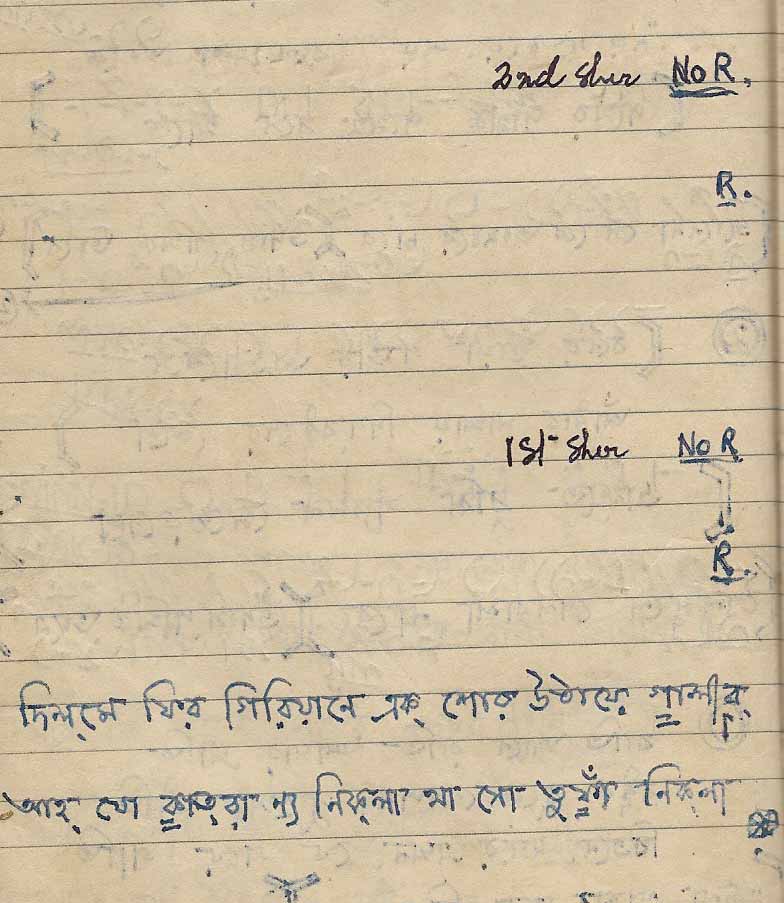 2nd Sher No R.
R.
1st Sher No R
R.
দিল্‌মে ফির গিরিয়ানে এক্ শোর্ উঠায়ে গালীব্
আহ্ যো ক্বাত্‌রা ন্য নিক্‌লা থা সো তুফাঁ নিক্‌লা